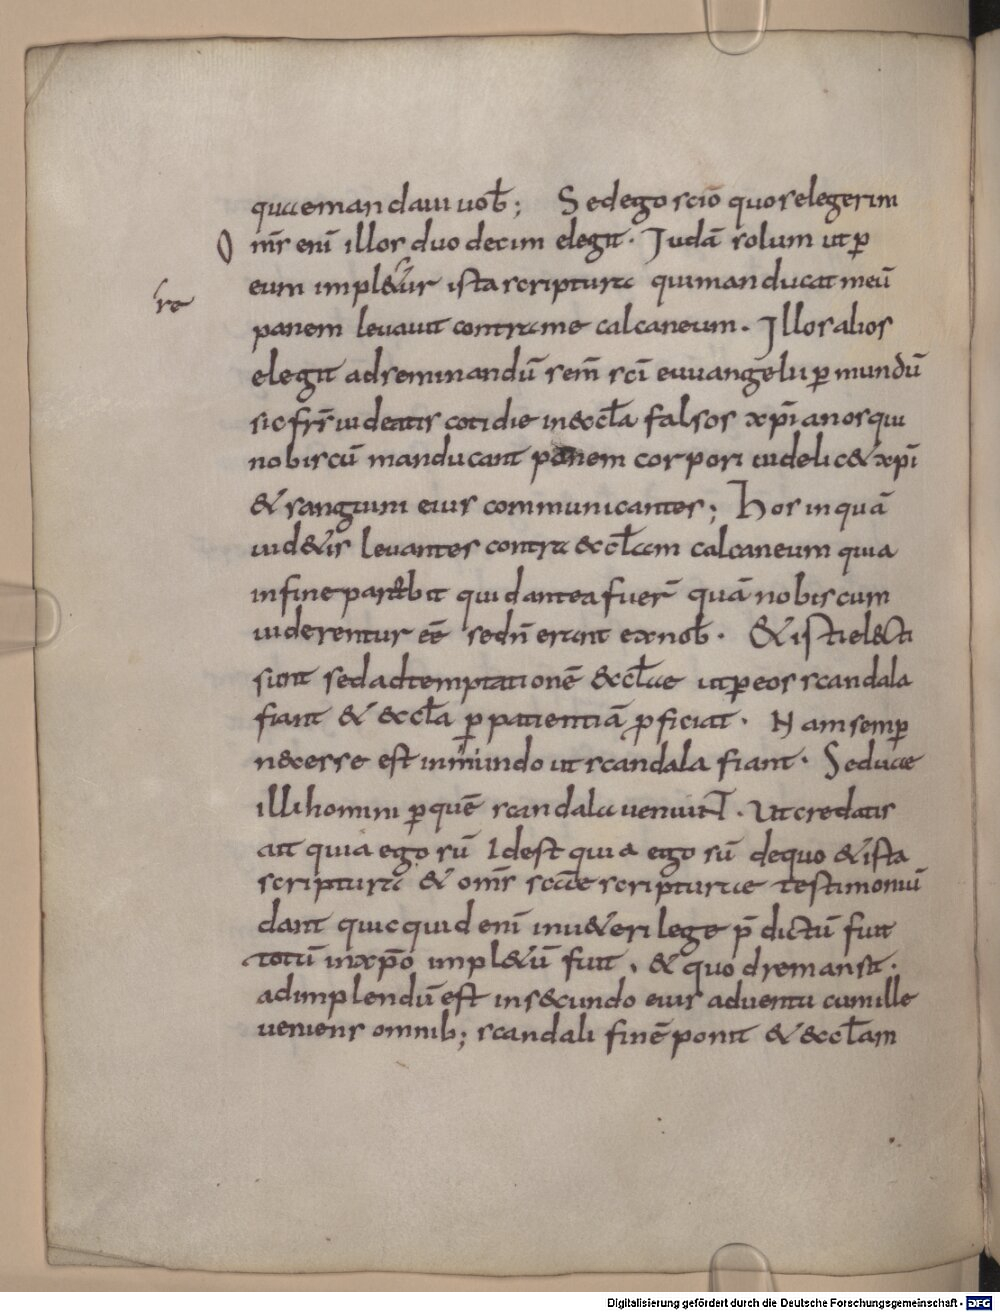 quaemandaui uob; Sed ego scio quos elegerim
Om̄s eni illos duodecim elegit. Judā solum ut p̱
eum impl&ur ista scriptura qui manducat meū
re
panem leuauit contra me calcaneum. Illos alios
elegit ad seminandū sem̄ sc̄i euuangelii p̱ mundū
sic fr̄s uideatis cotidie in eccl̄a falsos xp̄ianos qui
nobiscū manducant panem corpori uidelic& xp̄i
& sanguini eius communicantes; Hos inquā
uid&is leuantes contra eccl̄am calcaneum quia
in fine parebit qui dantea fuer̄ quā nobiscum
uiderentur eē sed n̄ erant ex nob̄. & isti electi
sunt sed ad temptationē eccl̄ae ut p̱ eos scandala
fiant & eccl̄a p̱ patientiā p̱ficiat. Nam semp̱
necesse est in mundo ut scandala fiant. Sed uae
illi homini p̱ quē scandala ueniunt. Ut credatis
ait quia ego sū Idest quia ego sū de quo & ista
scriptura & om̄s sc̄ae scripturae testimoniū
dant quicquid enī in u&eri lege p̄dictū fuit
totū in xp̄o impl&ū fuit, & quod remansit.
adimplendū est in secundo eius aduentu cum ille
ueniens omnib; scandali finē ponit & eccl̄am
Digitalisierung gefördert durch die Deutsche Forschungsgemeinschaft - DFG